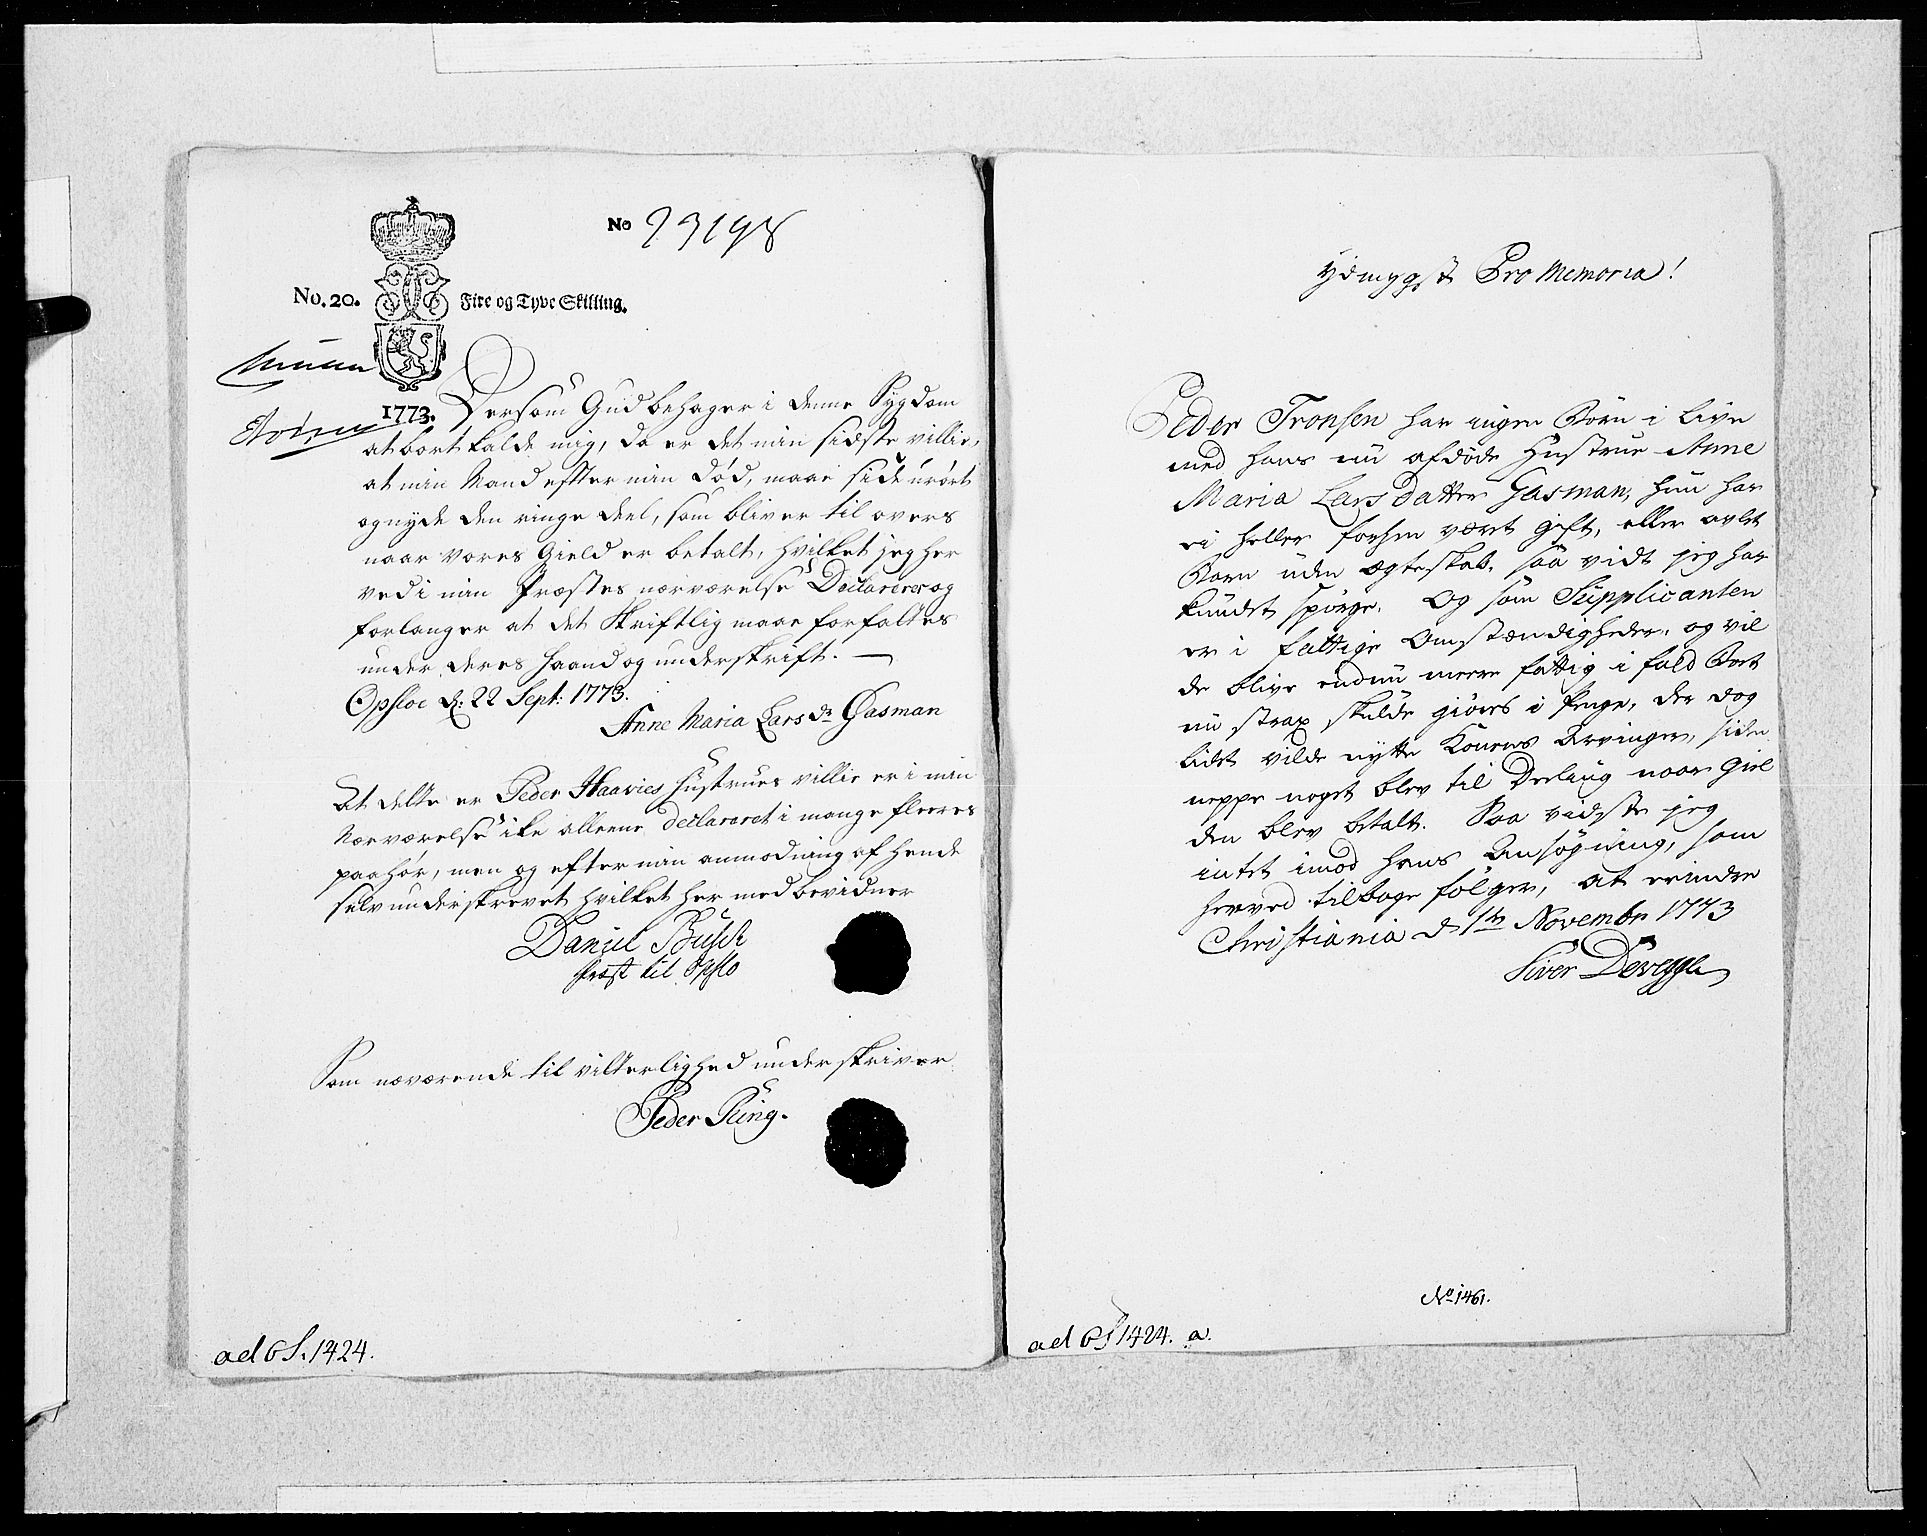 No 23198
No. 20. Fire og Tyve Skilling.
1773. Dersom Gud behager i denne Sygdom
at bortkalde mig, da er det min sidste villie,
at min Mand efter min Død, maae side urørt
og nyde den ringe deel, som bliver til overs
naar vores Gield er betalt, hvilket jeg her
ved i min Præstes nærværelse Declarerer og
forlanger at det skriftlig maae forfattes
under deres haand og underskrift. —
Opsloe d: 22 Sept: 1773.
Anne Maria Lars dr Gasman
At dette er Peder Haavies Hustrues villie er i min
Nærværelse ike alleene declareret i mange fleeres
paahør, men og efter min anmodning af hende
selv underskrevet hvilket her med bevidner
Daniel Busch
Præst til Opslo
Som nærværende til vitterlighed underskriver
Peder Ring.
ad 6 S. 1424.
Ydmygst Pro Memoria!
Peder Tronsen har ingen Børn i Live
med hans nu afdøde Hustrue Anne
Maria Lars datter Gasman, hun har
ei heller forhen været gift, eller avlet
Børn uden ægteskab, saa vidt jeg har
kundet spørge. Og som Supplicanten
er i fattige Omstændigheder, og vil
de blive endnu meere fattig i fald Boet
nu strax skulde giøres i Penge, der dog
lidet vilde nytte Konens Arvinger, siden
neppe noget blev til Deeling naar Giel
den blev betalt. Saa vidste jeg
intet imod hans Ansøgning, som
herved tilbage følger, at erindre
Christiania d 1te Novembr 1773
Siver Develle
No 1461.
ad 6 S 1424. a.